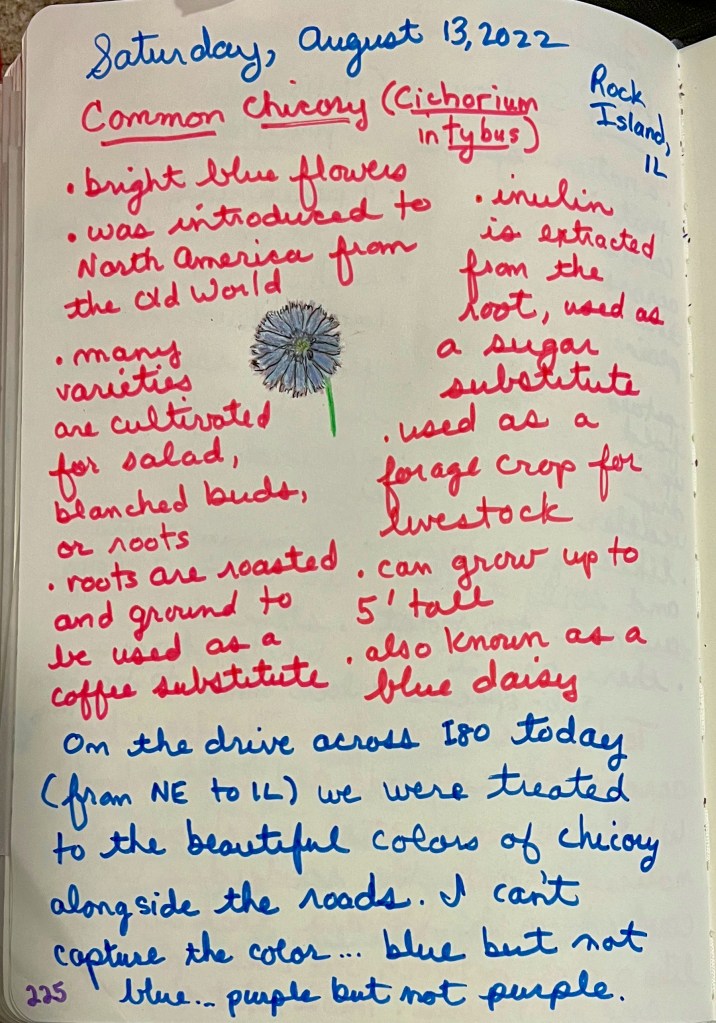 Saturday, August 13, 2022
Rock
Island,
IL
Common Chicory (Cichorium
intybus)
• bright blue flowers
• was introduced to
North America from
the Old World
• many
varieties
are cultivated
for salad,
blanched buds,
or roots
• roots are roasted
and ground to
be used as a
coffee substitute
• inulin
is extracted
from the
root, used as
a sugar
substitute
• used as a
forage crop for
livestock
• can grow up to
5' tall
• also known as a
blue daisy
On the drive across I80 today
(from NE to IL) we were treated
to the beautiful colors of chicory
alongside the roads. I can't
capture the color... blue but not
blue... purple but not purple.
225